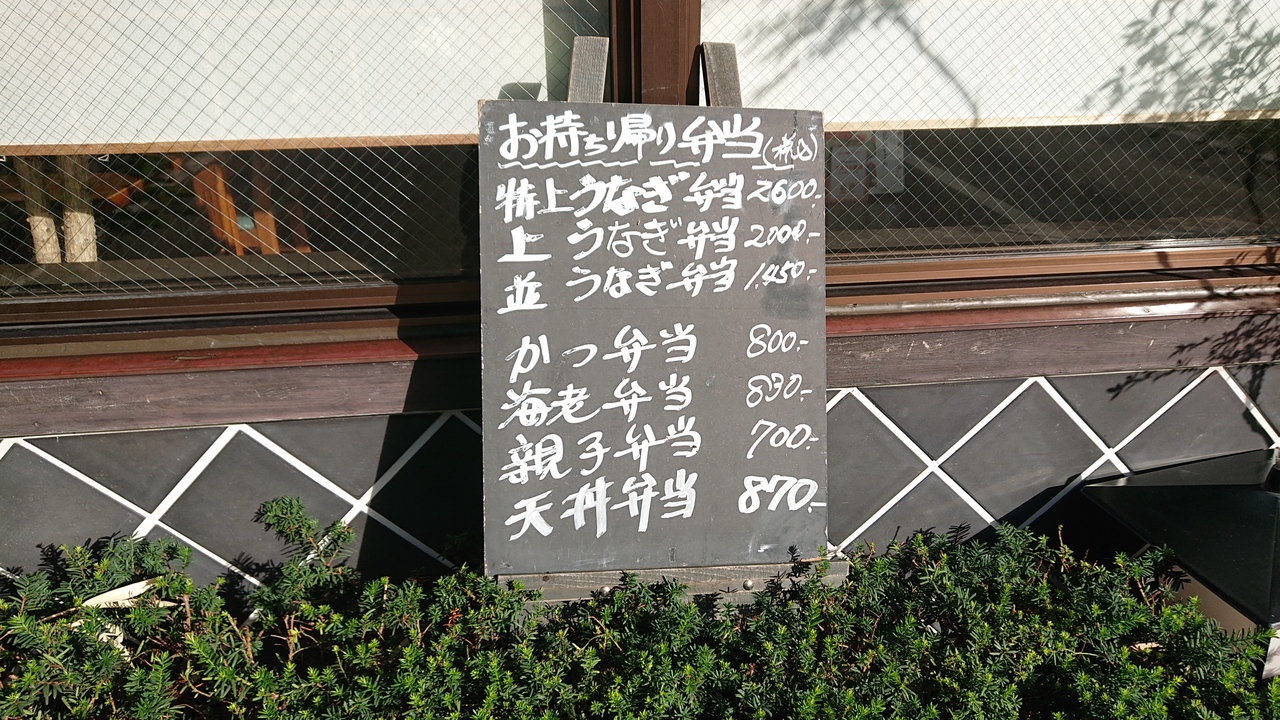 お持ち帰り弁当(税込)
特上うなぎ弁当 2600.-
上 うなぎ弁当 2000.-
並 うなぎ弁当 1,450.-
かつ弁当 800.-
海老弁当 890.-
親子弁当 700.-
天丼弁当 870.-